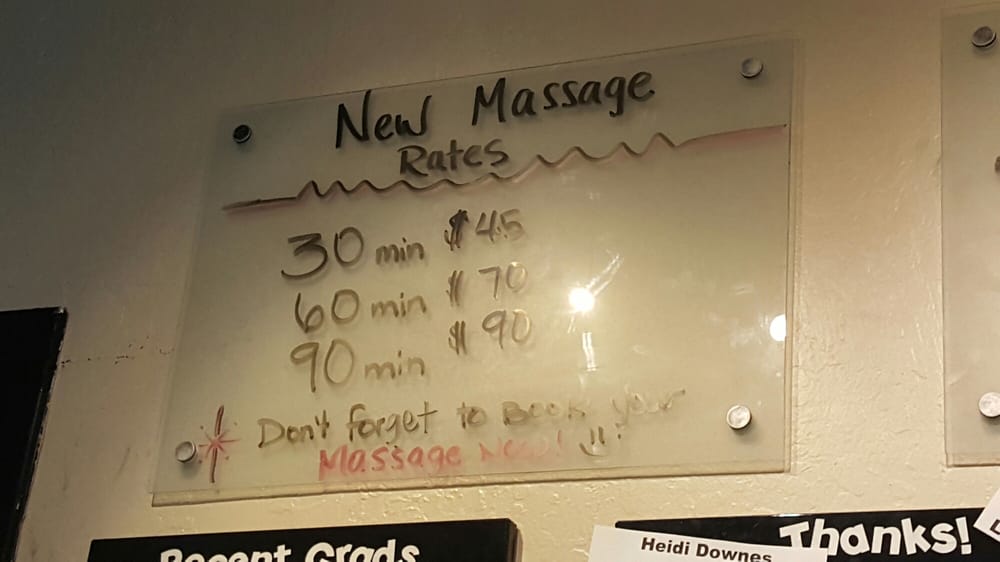 New Massage
Rates
30 min $45
60 min $70
90 min $90
Don't forget to Book your
Massage Now!
Recent Grads
Heidi Downes
Thanks!